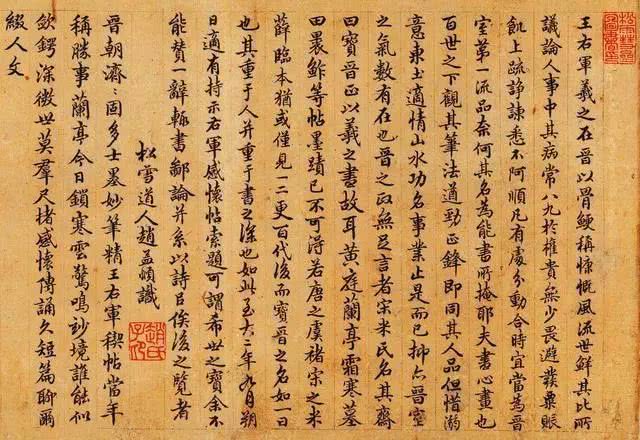 王右軍羲之在晉以骨鯁稱慷慨風流世鮮其比所
議論人事中其病常八九於權貴無少畏避發粟賬
飢上疏諍諫悉不阿順凡有處分動合時宜當為晉
室第一流品奈何其名為能書所掩耶夫書心畫也
百世之下觀其筆法遒勁正鋒即同其人品但惜溺
意東土適情山水功名事業止是而已抑亦晉室
之氣數有在也晉之政無足言者宋米氏名其齋
曰寶晉正以羲之書故耳黃庭蘭亭霜寒墓
田裹鮓等帖墨蹟已不可得若唐之虞褚宋之米
薛臨本猶或僅見一二更百代後而寶晉之名如一日
也其重于人并重于書之深也如此至大二年九月朔
日適有持示右軍感懷帖索題可謂希世之寶余不
能贊一辭輒書鄙論并系以詩以俟後之覽者
松雪道人趙孟頫識
趙氏子昂
晉朝濟〻固多士墨妙筆精王右軍稧帖當年
稱勝事蘭亭今日鎖寒雲驚鳴沙境誰能似
斂鍔深微世莫羣尺楮感懷傳誦久短篇聊爾
綴人文